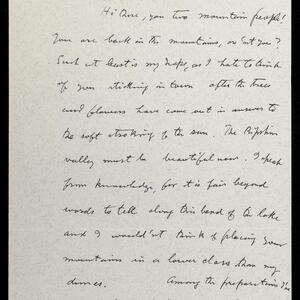 Hi there, you two mountain people!
You are back in the mountains, aren't you?
Such at least is my hope, as I hate to think
of you sticking in town after the trees
and flowers have come out in answer to
the soft stroking of the sun. The Ripshin
valley must be beautiful now. I speak
from knowledge, for it is fair beyond
words to tell along this bend of the lake
and I wouldn't think of placing your
mountains in a lower class than my
dunes. Among the preparations I've